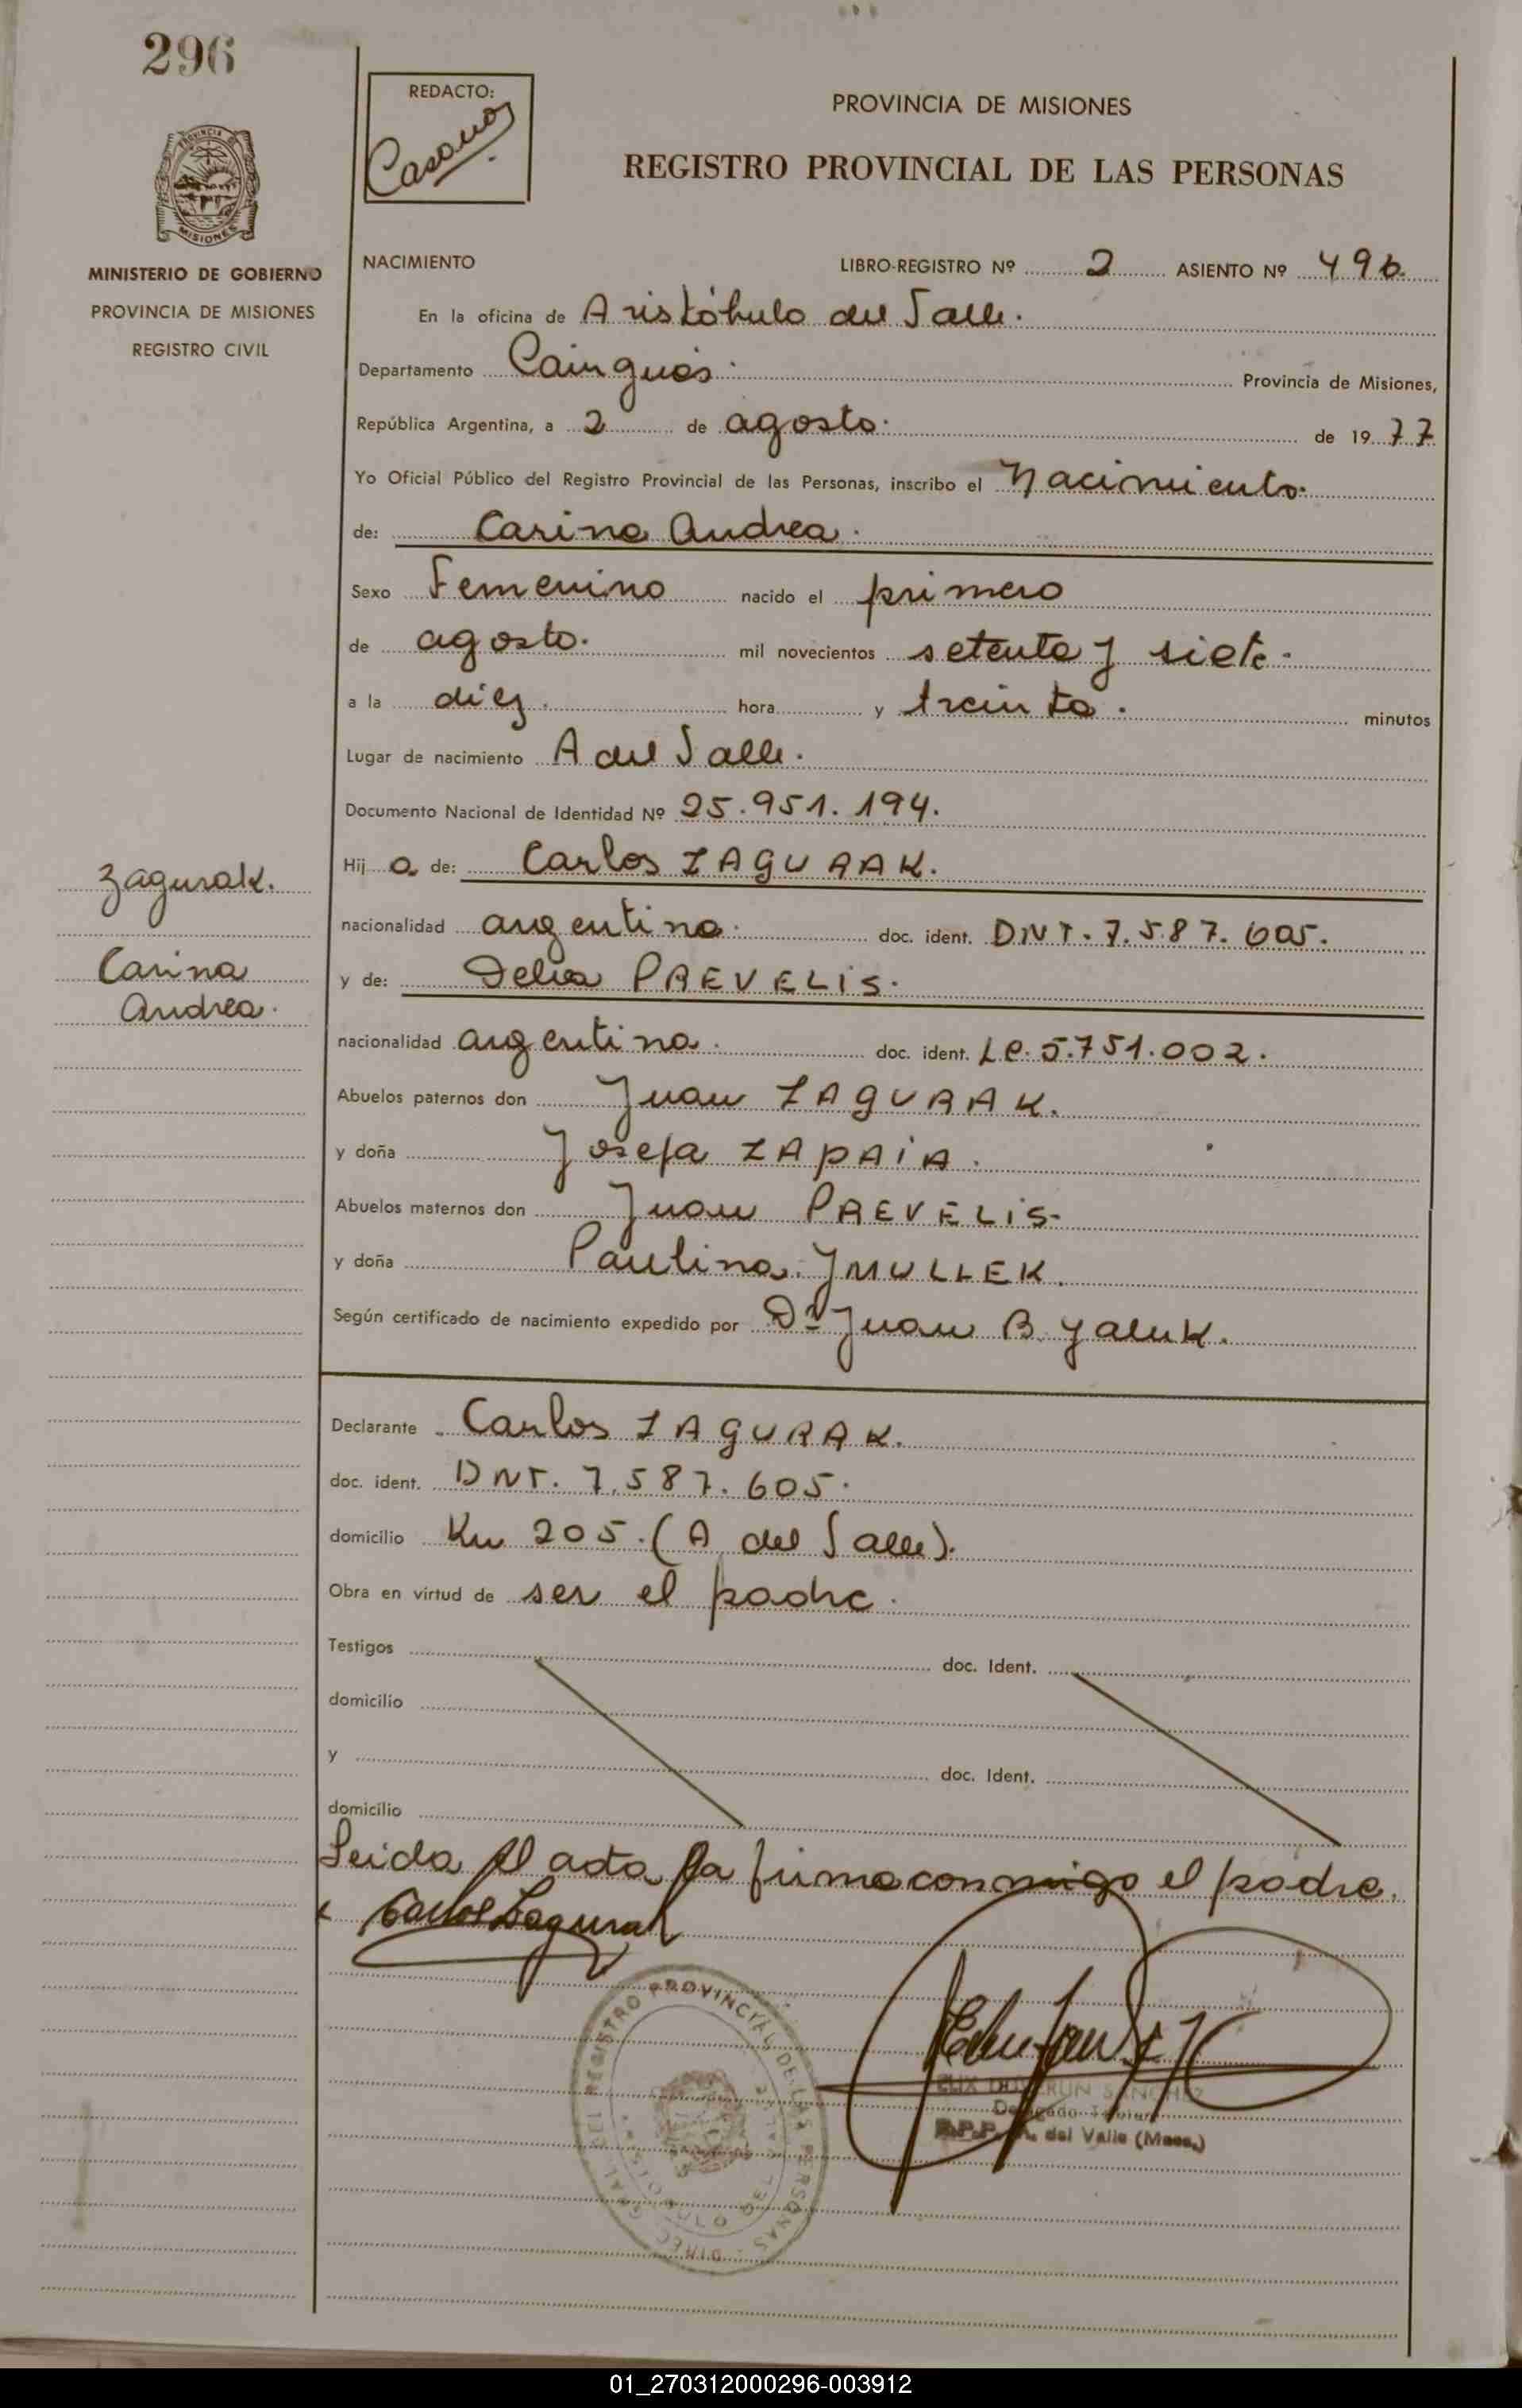 296
REDACTO:
Casano
PROVINCIA DE MISIONES
REGISTRO PROVINCIAL DE LAS PERSONAS
PROVINCIA DE
MISIONES
MINISTERIO DE GOBIERNO
PROVINCIA DE MISIONES
REGISTRO CIVIL
NACIMIENTO
LIBRO-REGISTRO Nº 2 ASIENTO Nº 496.
En la oficina de Aristóbulo del Valle.
Departamento Cainguás. Provincia de Misiones,
República Argentina, a 2 de agosto. de 1977
Yo Oficial Público del Registro Provincial de las Personas, inscribo el Nacimiento.
de: Carina Andrea.
Sexo Femenino nacido el primero
de agosto. mil novecientos setenta y siete.
a la diez. hora y treinta. minutos
Lugar de nacimiento A del Valle.
Documento Nacional de Identidad Nº 25.951.194.
Hija de: Carlos ZAGURAK.
Zagurak.
Carina
Andrea.
nacionalidad argentina. doc. ident. DNI. 7.587.605.
y de: Delia PREVELIS.
nacionalidad argentina. doc. ident. LC. 5.751.002.
Abuelos paternos don Juan ZAGURAK.
y doña Josefa ZAPAIA.
Abuelos maternos don Juan PREVELIS.
y doña Paulina JMULLEK.
Según certificado de nacimiento expedido por Dr Juan B. Yaluk.
Declarante Carlos ZAGURAK.
doc. ident. DNI. 7.587.605.
domicilio Km 205. (A del Valle).
Obra en virtud de ser el padre.
Testigos doc. Ident.
domicilio
y doc. Ident.
domicilio
Leida el acta la firma conmigo el padre.
x Carlos Zagurak
REGISTRO PROVINCIAL DE LAS PERSONAS
SANCHEZ
Delegado Titular
R.P.P. A. del Valle (Mnes.)
01_270312000296-003912